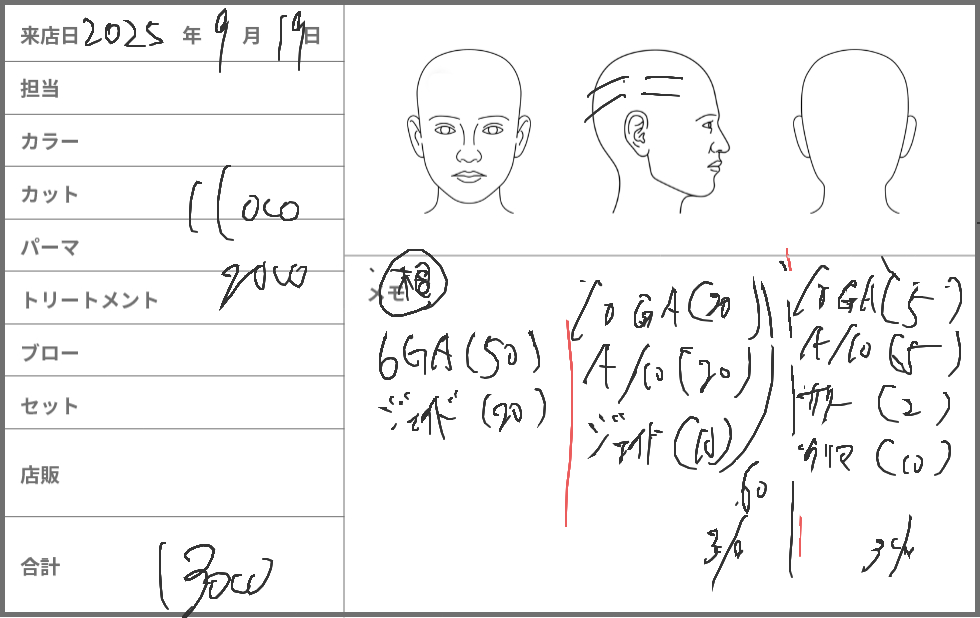 来店日 2025 年 9 月 19 日
担当
カラー
カット 11000
パーマ
トリートメント 2000
ブロー
セット
店販
合計 13000
メモ 根
6GA(50)
ジェイド(20)
10GA(20)
A/10(20)
ジェイド(10)
60
3/0
10GA(5)
A/10(5)
(2)
クリア(10)